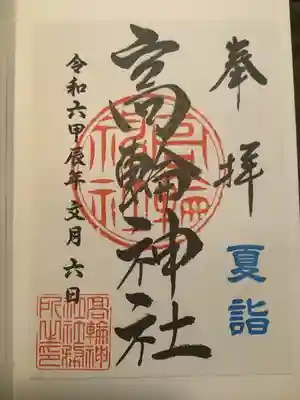 奉拝
夏詣
高輪神社
令和六甲辰年文月六日
高輪神社
高輪神
社社務
所之印